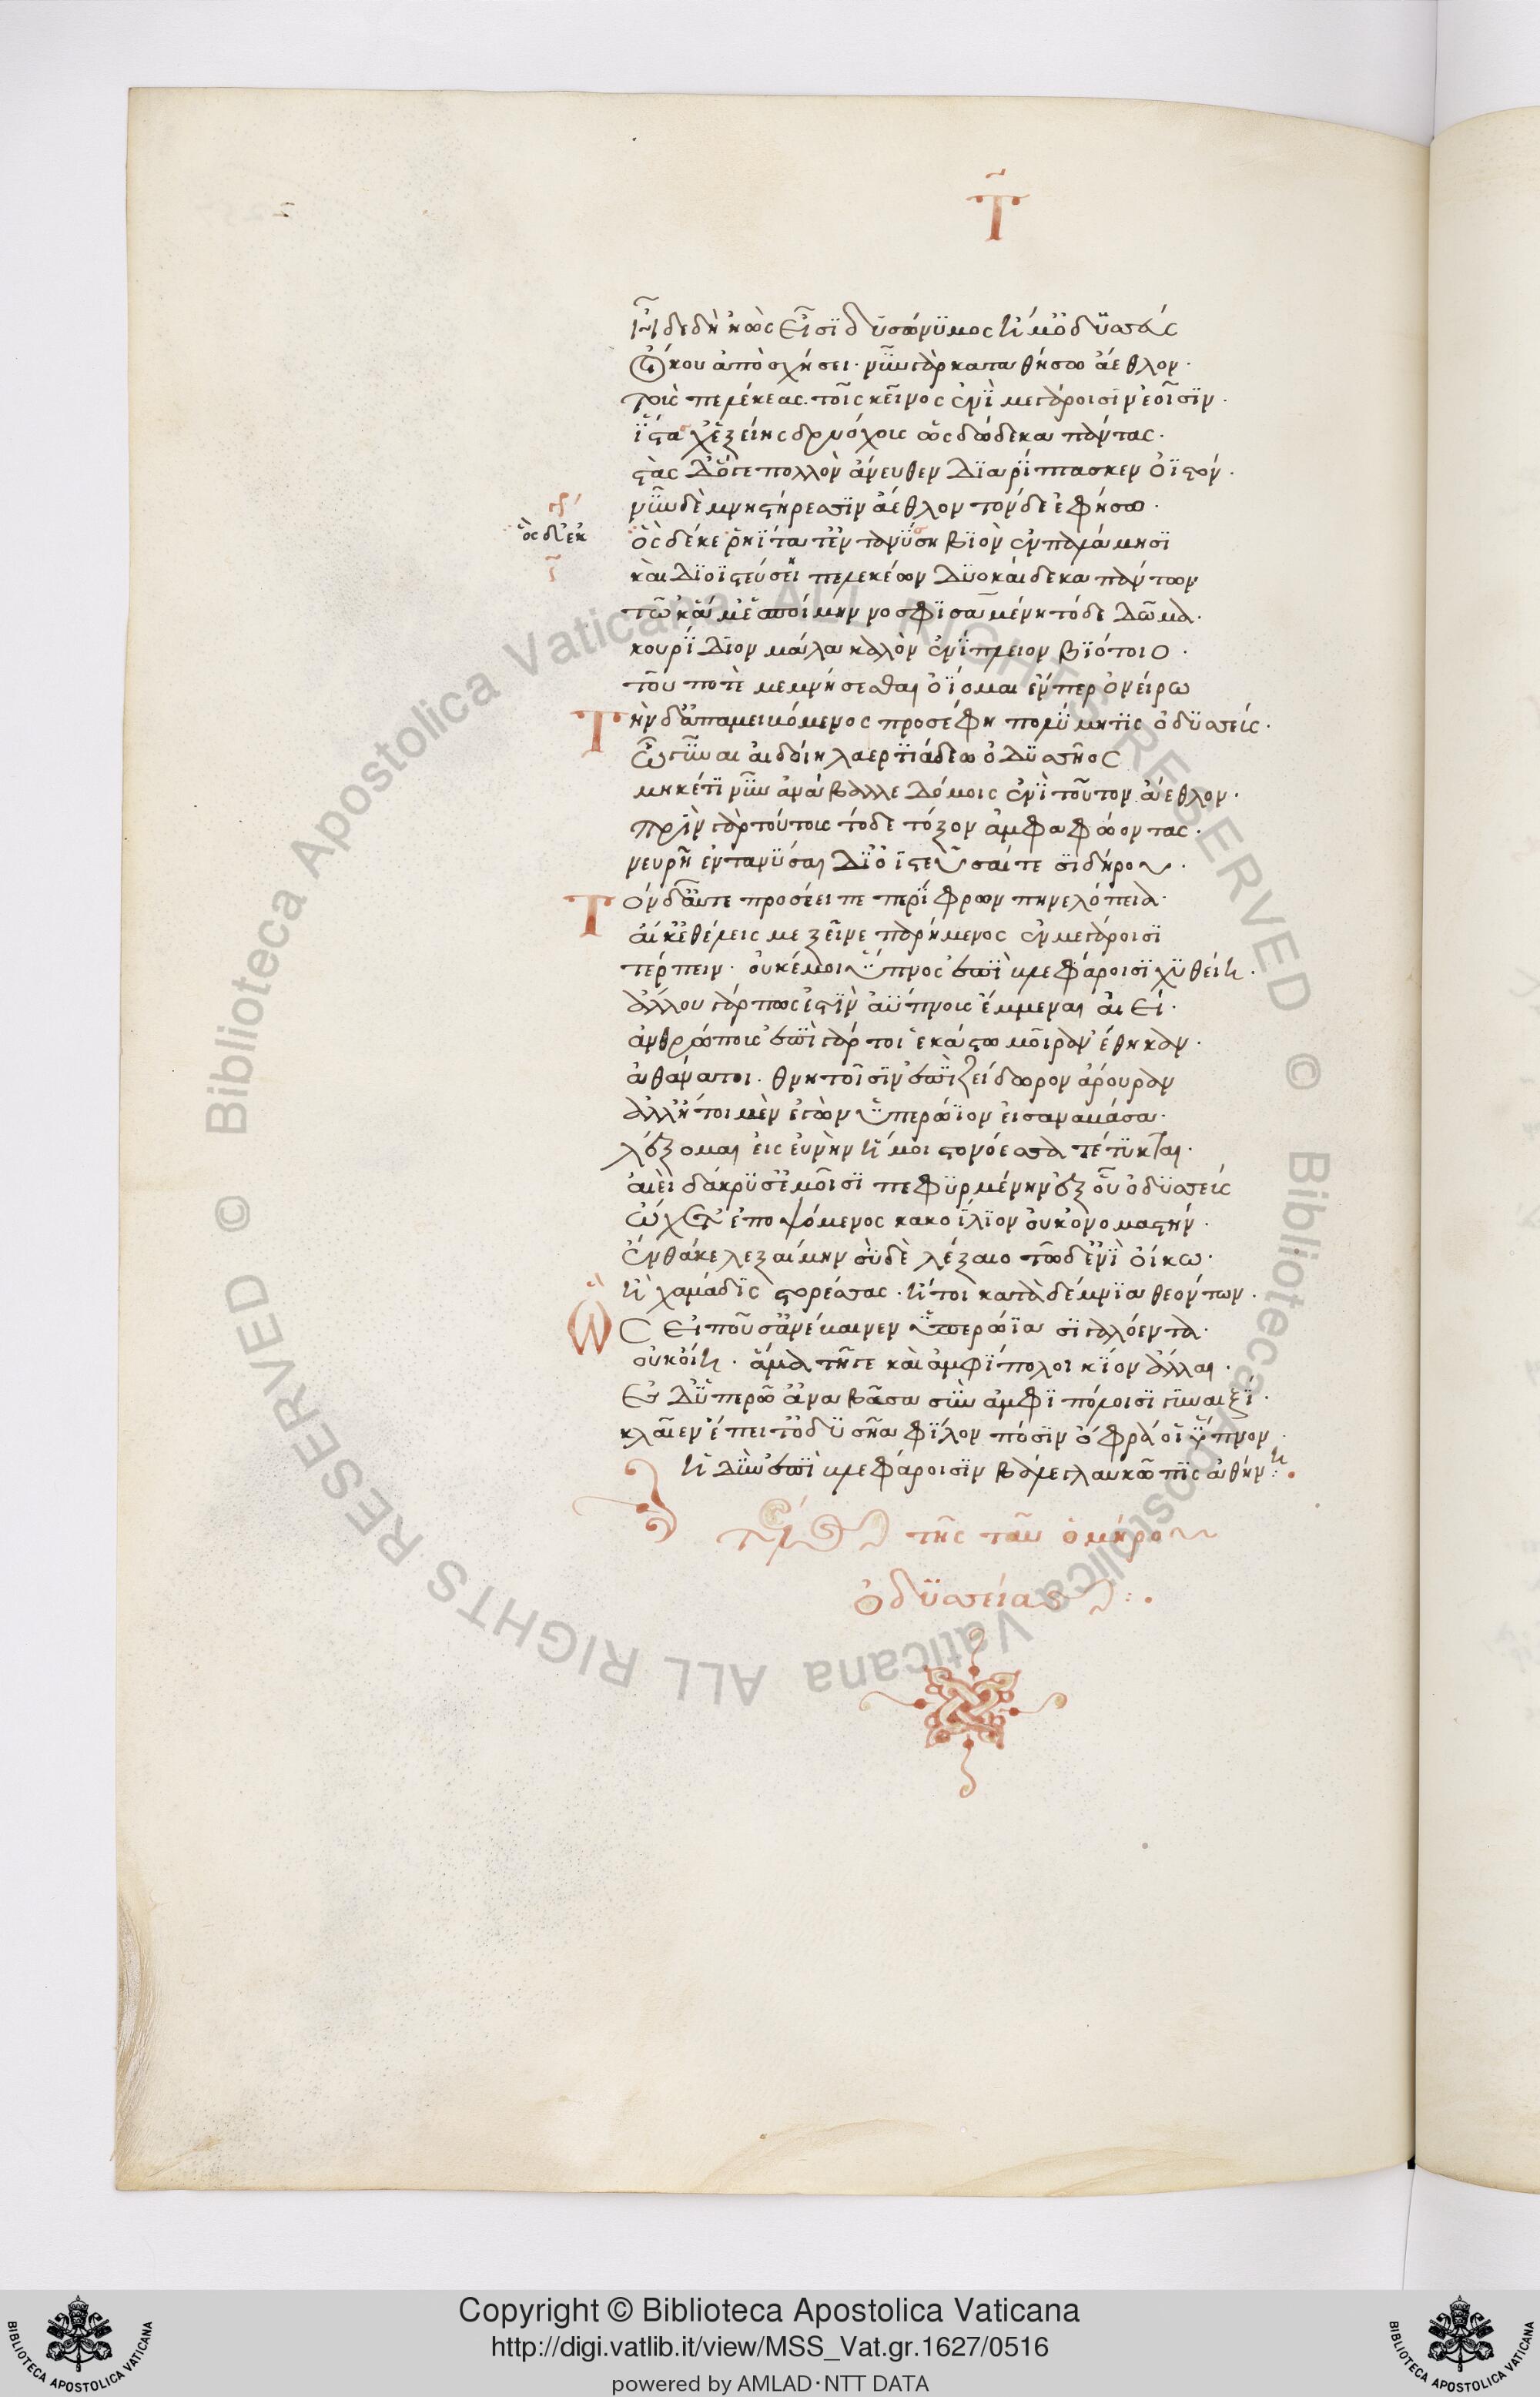 Τ
ἥδε δὴ ἠὼς εἶσι δυσώνυμος ἥ μ' ὀδυσσῆος
οἴκου ἀποσχήσει· νῦν γὰρ καταθήσω ἄεθλον·
τοὺς πελέκεας. τοὺς κεῖνος ἐνὶ μεγάροισιν ἑοῖσιν·
ἵστασχ' ἑξείης δρυόχους ὣς δώδεκα πάντας·
στὰς δ' ὅγε πολλὸν ἄνευθεν διαρίπτασκεν ὀϊστόν·
νῦν δὲ μνηστήρεσσιν ἄεθλον τόνδ' ἐφήσω·
ὃς δ' ἐκ
ὃς δέ κε ῥηΐτατ' ἐντανύσῃ βιὸν ἐν παλάμῃσι
καὶ διοϊστεύσει πελεκέων δυοκαίδεκα πάντων
τῷ κεν ἅμ' ἑσποίμην νοσφισαμένη τόδε δῶμα·
κουρίδιον μάλα καλὸν ἐνίπλειον βιότοιο·
τοῦ ποτὲ μεμνήσεσθαι ὀΐομαι ἔν περ ὀνείρω
Τὴν δ' ἀπαμειβόμενος προσέφη πολύμητις ὀδυσσεύς·
ὦ γύναι αἰδοίη λαερτιάδεω ὀδυσσῆος
μηκέτι νῦν ἀνάβαλλε δόμοις ἐνὶ τοῦτον ἄεθλον·
πρὶν γὰρ τούτους τόδε τόξον ἀμφαφόωντας·
νευρὴν ἐντανύσαι διοϊστεῦσαί τε σιδήρου·
Τὸν δ' αὖτε προσέειπε περίφρων πηνελόπεια·
αἴ κ' ἐθέλεις με ξεῖνε παρήμενος ἐν μεγάροισι
τέρπειν· οὔ κέ μοι ὕπνος ἐπὶ βλεφάροισι χυθείη·
ἀλλ' οὐ γάρ πως ἔστιν ἀΰπνους ἔμμεναι αἰεί·
ἀνθρώπους ἐπὶ γάρ τοι ἑκάστω μοῖραν ἔθηκαν·
ἀθάνατοι. θνητοῖσιν ἐπὶ ζείδωρον ἄρουραν
ἀλλ' ἤτοι μὲν ἐγὼν ὑπερώϊον εἰσαναβᾶσα·
λέξομαι εἰς εὐνὴν ἥ μοι στονόεσσα τέτυκται·
αἰεὶ δάκρυσ' ἐμοῖσι πεφυρμένη ἐξ οὗ ὀδυσσεύς
ὤχετ' ἐποψόμενος κακοΐλιον οὐκ ὀνομαστήν·
ἔνθα κε λεξαίμην σὺ δὲ λέξαιο τῷδ' ἐνὶ οἴκω·
ἢ χαμάδις στορέσας· ἤ τοι κατὰ δέμνια θέντων·
Ὣς εἰποῦσ' ἀνέβαινεν ὑπερώϊα σιγαλόεντα·
οὐκ οἴη· ἅμα τῇγε καὶ ἀμφίπολοι κίον ἄλλαι·
ἐς δ' ὑπερῷ' ἀναβᾶσα σὺν ἀμφιπόλοισι γυναιξί·
κλαῖεν ἔπειτ' ὀδυσῆα φίλον πόσιν ὄφρά οἱ ὕπνον
ἡδὺν ἐπὶ βλεφάροισιν βάλε γλαυκῶπις ἀθήνη:
τέλος τῆς ταῦ ὁμήρου
ὀδυσσείας:
© Biblioteca Apostolica Vaticana ALL RIGHTS RESERVED © Biblioteca Apostolica Vaticana ALL RIGHTS RESERVED
Copyright © Biblioteca Apostolica Vaticana
http://digi.vatlib.it/view/MSS_Vat.gr.1627/0516
powered by AMLAD·NTT DATA
BIBLIOTECA APOSTOLICA VATICANA
BIBLIOTECA APOSTOLICA VATICANA